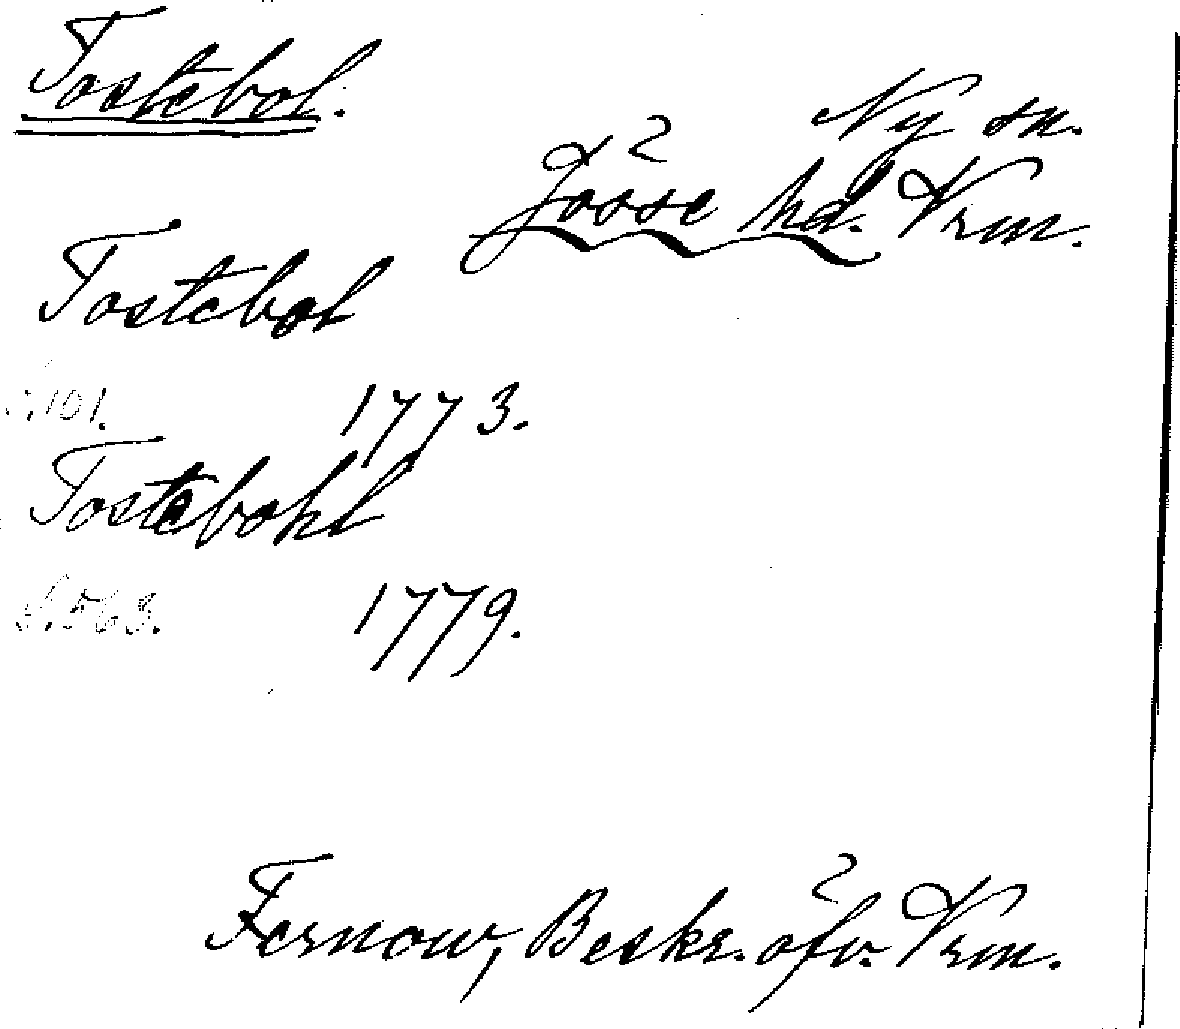 Tostebol.
Ny sn.
Jösse hd. Vrm.
Tostebol
S.101. 1773.
Tostebohl
S.563. 1779.
Fernow, Beskr. öfv. Vrm.